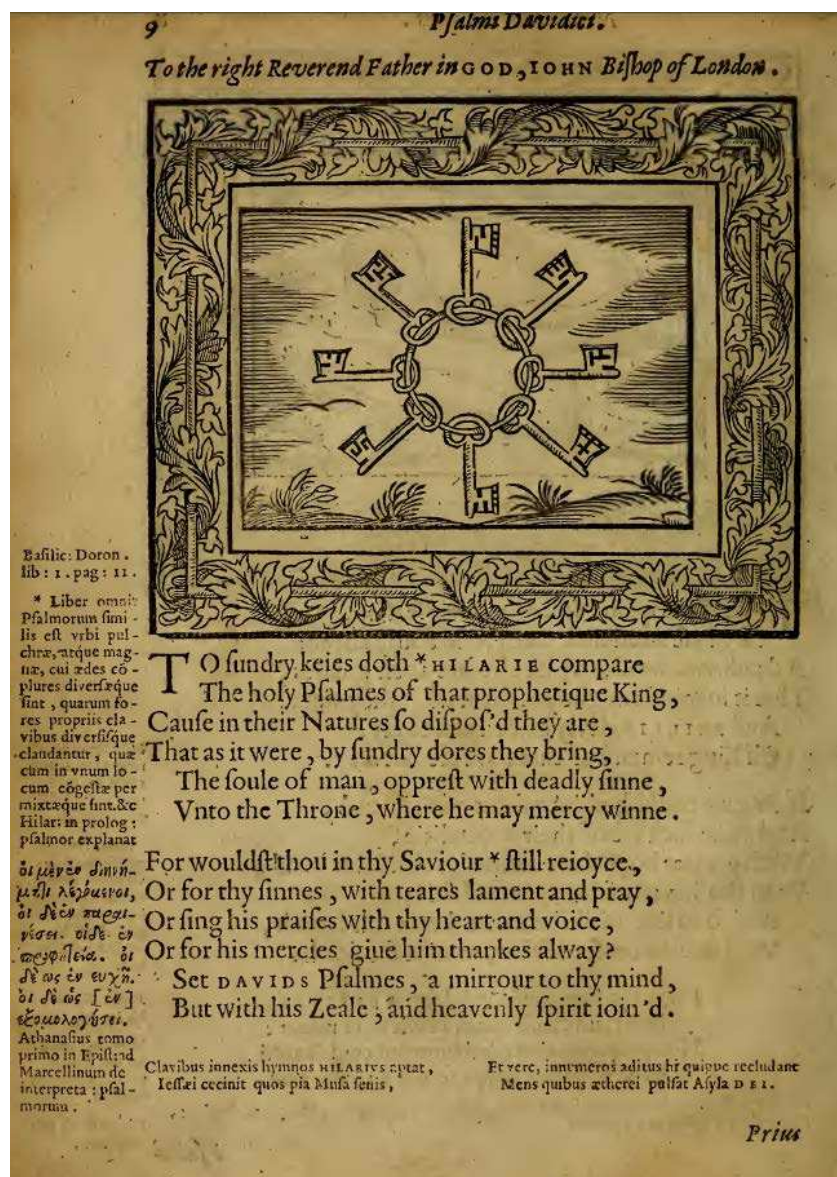 9 Psalmi Davidici.
To the right Reverend Father in GOD, IOHN Biſhop of London.
Baſilic: Doron.
lib: 1. pag: 11.
* Liber omnis
Pſalmorum ſimi-
lis eſt vrbi pul-
chræ, atque mag-
næ, cui ædes cō-
plures diverſæque
ſint, quarum fo-
res propriis cla-
vibus diverſiſque
claudantur, quæ
cùm in vnum lo-
cum cōgeſtæ per
mixtæque ſint.&c
Hilar: in prolog:
pſalmor explanat
οἱ μὲν ἐν διηγή-
μασι λεγόμενοι,
οἱ δὲ ἐν παραι-
νέσει. οἱ δὲ ἐν
προφητεία. οἱ
δὲ ὡς ἐν ευχῇ.
οἱ δὲ ὡς [ἐν]
ἐξομολογήσει.
Athanaſius tomo
primo in Epiſt:ad
Marcellinum de
interpreta: pſal-
morum.
TO ſundry keies doth * HILARIE compare
The holy Pſalmes of that prophetique King,
Cauſe in their Natures ſo diſpoſ'd they are,
That as it were, by ſundry dores they bring,
The ſoule of man, oppreſt with deadly ſinne,
Vnto the Throne, where he may mercy winne.
For wouldſt thou in thy Saviour * ſtill reioyce,
Or for thy ſinnes, with teares lament and pray,
Or ſing his praiſes with thy heart and voice,
Or for his mercies giue him thankes alway?
Set DAVIDS Pſalmes, a mirrour to thy mind,
But with his Zeale, and heavenly ſpirit ioin'd.
Clavibus innexis hymnos HILARIVS aptat,
Ieſſæi cecinit quos pia Muſa ſenis,
Et vere, innumeros aditus hi quippe recludant
Mens quibus ætherei pulſat Aſyla DEI.
Prius